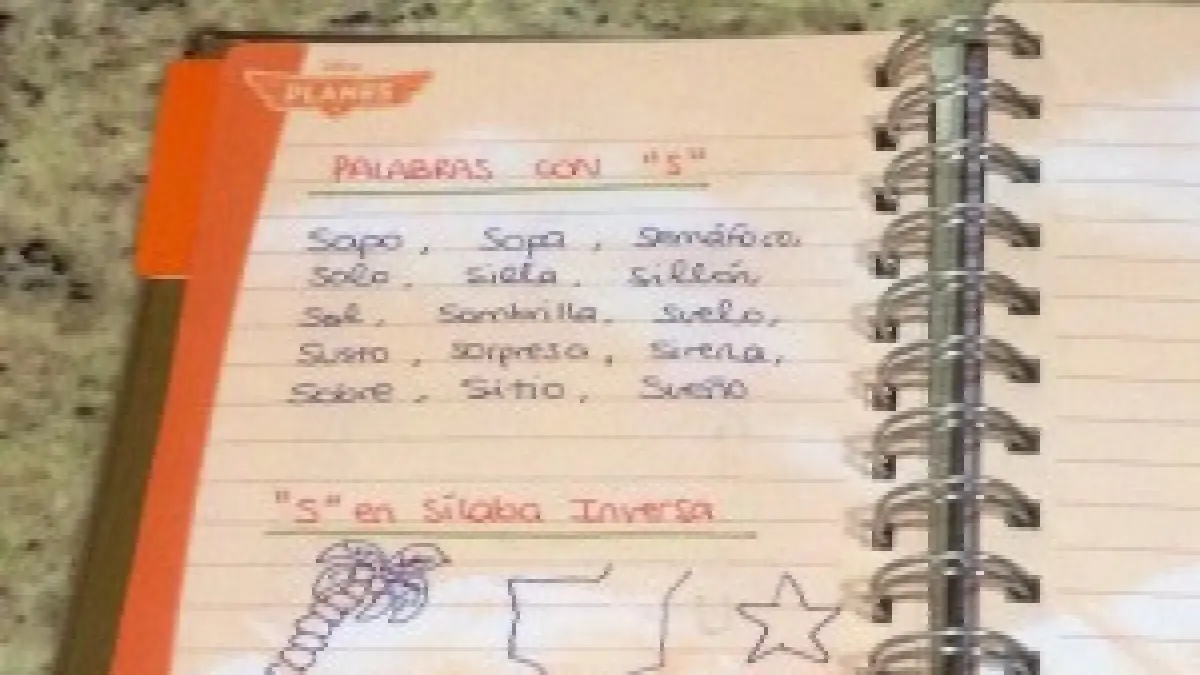 Disney
PLANES
PALABRAS CON "S"
Sapo, Sopa, Semáforo,
Solo, Silla, Sillón,
Sol, Sombrilla, Suelo,
Susto, Sorpresa, Sirena,
Sobre, Sitio, Sueño
"S" en Sílaba Inversa